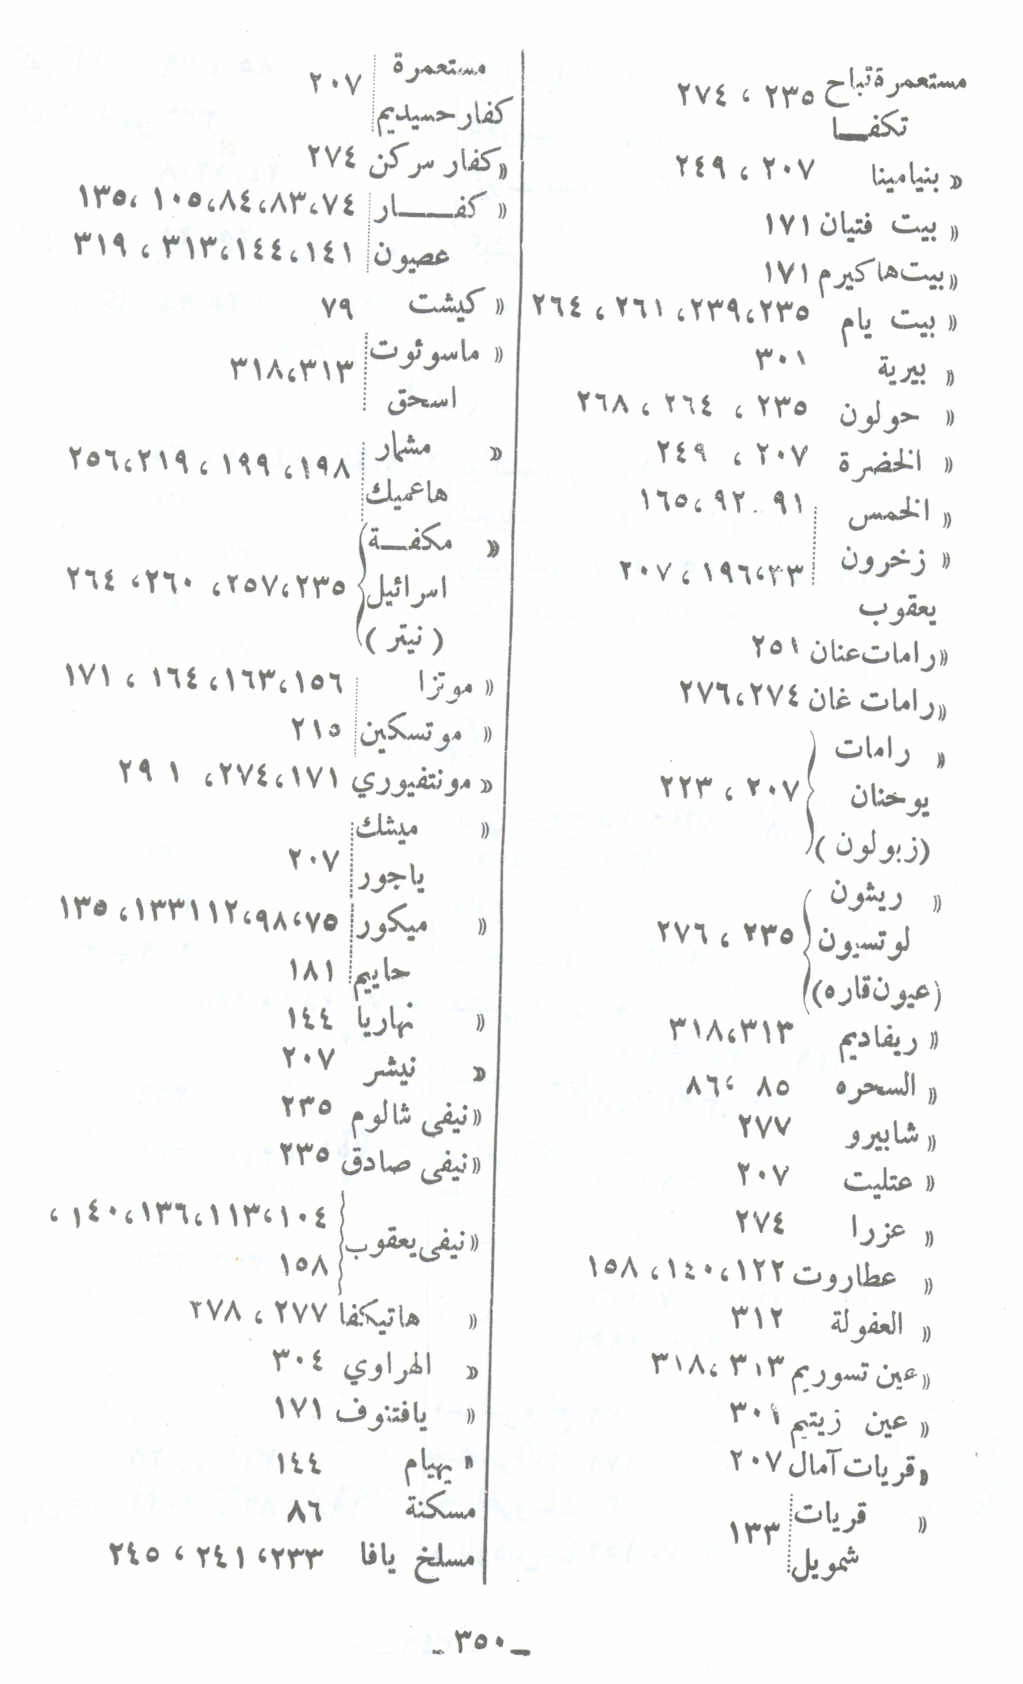 مستعمرة تباح ٢٣٥ ، ٢٧٤
تكفـــا
« بنيامينا ٢٠٧ ، ٢٤٩
« بيت فتيان ١٧١
« بيت هاكيرم ١٧١
« بيت يام ٢٣٥،٢٣٩، ٢٦١ ، ٢٦٤
« بيرية ٣٠١
« حولون ٢٣٥ ، ٢٦٤ ، ٢٦٨
« الخضرة ٢٠٧ ، ٢٤٩
« الخمس ٩١ . ٩٢ ،١٦٥
« زخرون ٢٣،١٩٦ ، ٢٠٧
يعقوب
« رامات عنان ٢٥١
« رامات غان ٢٧٤،٢٧٦
« رامات
يوحنان ٢٠٧ ، ٢٢٣
(زبولون )
« ريشون
لوتسيون ٢٣٥ ، ٢٧٦
(عيون قاره)
« ريفاديم ٣١٣،٣١٨
« السحره ٨٥ ،٨٦
« شابيرو ٢٧٧
« عتليت ٢٠٧
« عزرا ٢٧٤
« عطاروت ١٢٢،١٤٠، ١٥٨
« العفولة ٣١٢
« عين تسوريم ٣١٣ ،٣١٨
« عين زيتيم ٣٠١
« قريات آمال ٢٠٧
« قريات ١٣٣
شمويل
مستعمرة ٢٠٧
كفار حسيديم
« كفار سركن ٢٧٤
« كفـــــار ٧٤،٨٣،٨٤،١٠٥ ،١٣٥
عصيون ١٤١،١٤٤،٣١٣ ، ٣١٩
« كيشت ٧٩
« ماسوئوت ٣١٣،٣١٨
اسحق
« مشمار ١٩٨، ١٩٩ ،٢١٩،٢٥٦
هاعميك
« مكفـــة
اسرائيل ٢٣٥،٢٥٧، ٢٦٠ ، ٢٦٤
( نيتر )
« موتزا ١٥٦،١٦٣، ١٦٤ ، ١٧١
« موتسكين ٢١٥
« مونتفيوري ١٧١،٢٧٤، ٢٩١
« ميشك ٢٠٧
ياجور
« ميكور ٧٥،٩٨،١١٢ ١٣٣، ١٣٥
حاييم ١٨١
« نهاريا ١٤٤
« نيشر ٢٠٧
« نيفى شالوم ٢٣٥
« نيفى صادق ٢٣٥
« نيفى يعقوب ١٠٤،١١٣،١٣٦،١٤٠ ،
١٥٨
« هاتيكفا ٢٧٧ ، ٢٧٨
« الهراوي ٣٠٤
« يافتنوف ١٧١
« يهيام ١٤٤
مسكنة ٨٦
مسلخ يافا ٢٣٣،٢٤١ ، ٢٤٥
ـ ٣٥٠ ـ